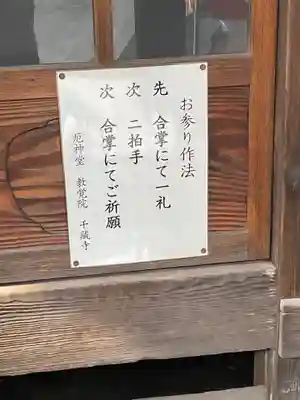 お参り作法
先 合掌にて一礼
次 二拍手
次 合掌にてご祈願
厄神堂 教覚院 千蔵寺